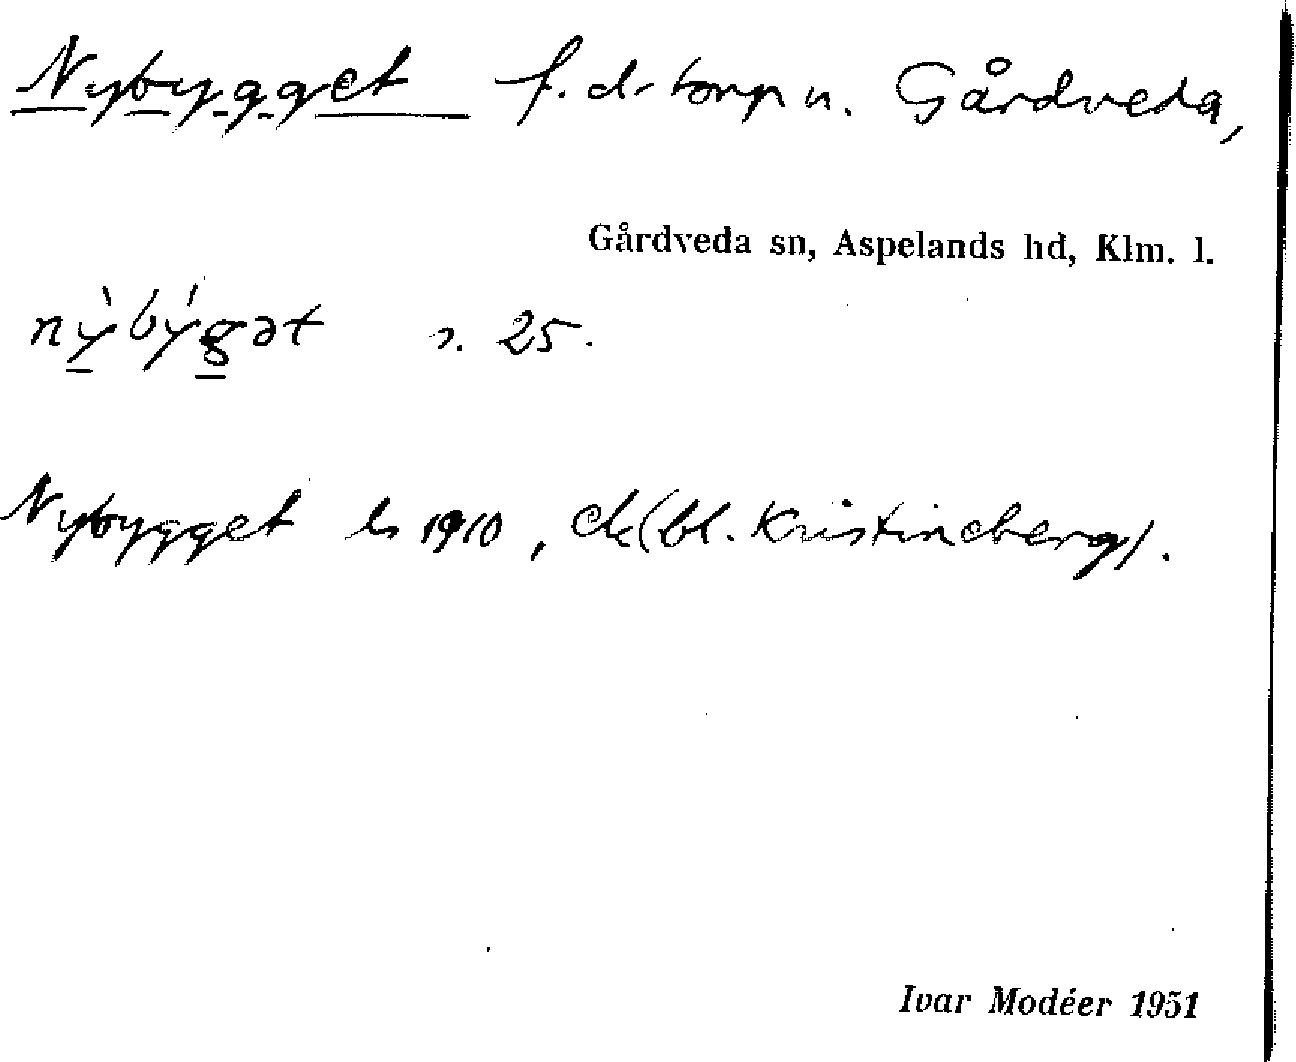 Nybygget f. d. torp u. Gårdveda,
Gårdveda sn, Aspelands hd, Klm. l.
nỳbýgət s. 25.
Nybygget ls 1910, ek(bl. Kristineberg).
Ivar Modéer 1951